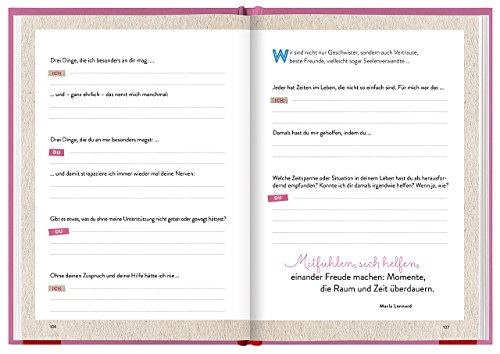 Drei Dinge, die ich besonders an dir mag: ...
ICH
... und – ganz ehrlich – das nervt mich manchmal:
Drei Dinge, die du an mir besonders magst: ...
DU
... und damit strapaziere ich immer wieder mal deine Nerven:
Gibt es etwas, was du ohne meine Unterstützung nicht getan oder gewagt hättest?
DU
Ohne deinen Zuspruch und deine Hilfe hätte ich nie ...
ICH
106
Wir sind nicht nur Geschwister, sondern auch Vertraute,
beste Freunde, vielleicht sogar Seelenverwandte ...
Jeder hat Zeiten im Leben, die nicht so einfach sind. Für mich war das ...
ICH
Damals hast du mir geholfen, indem du ...
Welche Zeitspanne oder Situation in deinem Leben hast du als herausfor-
dernd empfunden? Konnte ich dir damals irgendwie helfen? Wenn ja, wie?
DU
Mitfühlen, sich helfen,
einander Freude machen: Momente,
die Raum und Zeit überdauern.
Marla Lennard
107